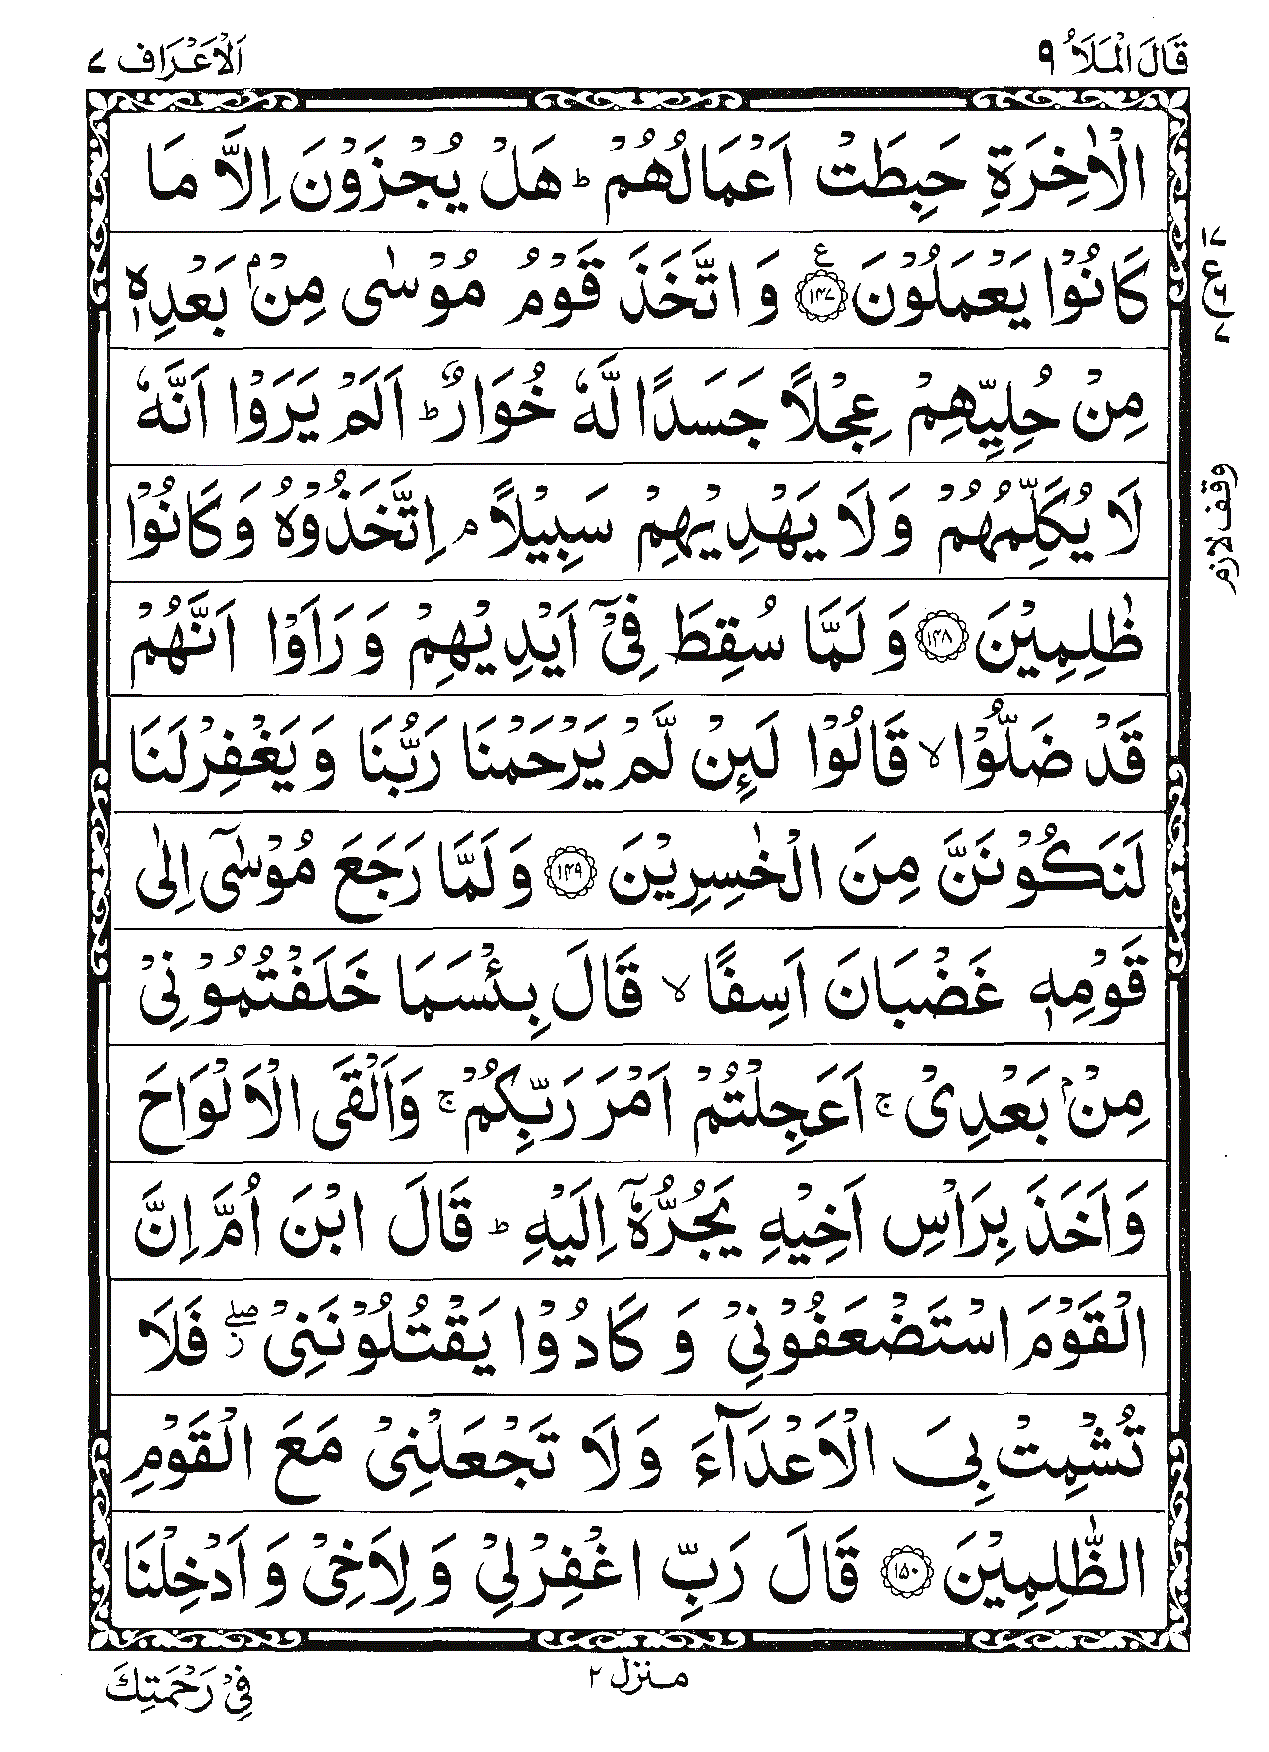 قَالَ الْمَلَاُ ٩
اَلْاَعْرَاف ٧
الْاٰخِرَةِ حَبِطَتْ اَعْمَالُهُمْ ؕ هَلْ يُجْزَوْنَ اِلَّا مَا
كَانُوْا يَعْمَلُوْنَ ﴿۱۴۷﴾ ع وَ اتَّخَذَ قَوْمُ مُوْسٰى مِنْۢ بَعْدِهٖ
١٧ ع ٦ ٧
مِنْ حُلِيِّهِمْ عِجْلًا جَسَدًا لَّهٗ خُوَارٌ ؕ اَلَمْ يَرَوْا اَنَّهٗ
لَا يُكَلِّمُهُمْ وَلَا يَهْدِيْهِمْ سَبِيْلًا ۘ اِتَّخَذُوْهُ وَكَانُوْا
وقف لازم
ظٰلِمِيْنَ ﴿۱۴۸﴾ وَ لَمَّا سُقِطَ فِىْۤ اَيْدِيْهِمْ وَرَاَوْا اَنَّهُمْ
قَدْ ضَلُّوْا ۙ قَالُوْا لَئِنْ لَّمْ يَرْحَمْنَا رَبُّنَا وَيَغْفِرْلَنَا
لَنَكُوْنَنَّ مِنَ الْخٰسِرِيْنَ ﴿۱۴۹﴾ وَلَمَّا رَجَعَ مُوْسٰٓى اِلٰى
قَوْمِهٖ غَضْبَانَ اَسِفًا ۙ قَالَ بِئْسَمَا خَلَفْتُمُوْنِىْ
مِنْۢ بَعْدِىْ ۚ اَعَجِلْتُمْ اَمْرَ رَبِّكُمْ ۚ وَاَلْقَى الْاَلْوَاحَ
وَاَخَذَ بِرَاْسِ اَخِيْهِ يَجُرُّهٗۤ اِلَيْهِ ؕ قَالَ ابْنَ اُمَّ اِنَّ
الْقَوْمَ اسْتَضْعَفُوْنِىْ وَ كَادُوْا يَقْتُلُوْنَنِىْ ۖز فَلَا
تُشْمِتْ بِىَ الْاَعْدَآءَ وَلَا تَجْعَلْنِىْ مَعَ الْقَوْمِ
الظّٰلِمِيْنَ ﴿۱۵۰﴾ قَالَ رَبِّ اغْفِرْلِىْ وَلِاَخِىْ وَاَدْخِلْنَا
منزل ٢
فِىْ رَحْمَتِكَ